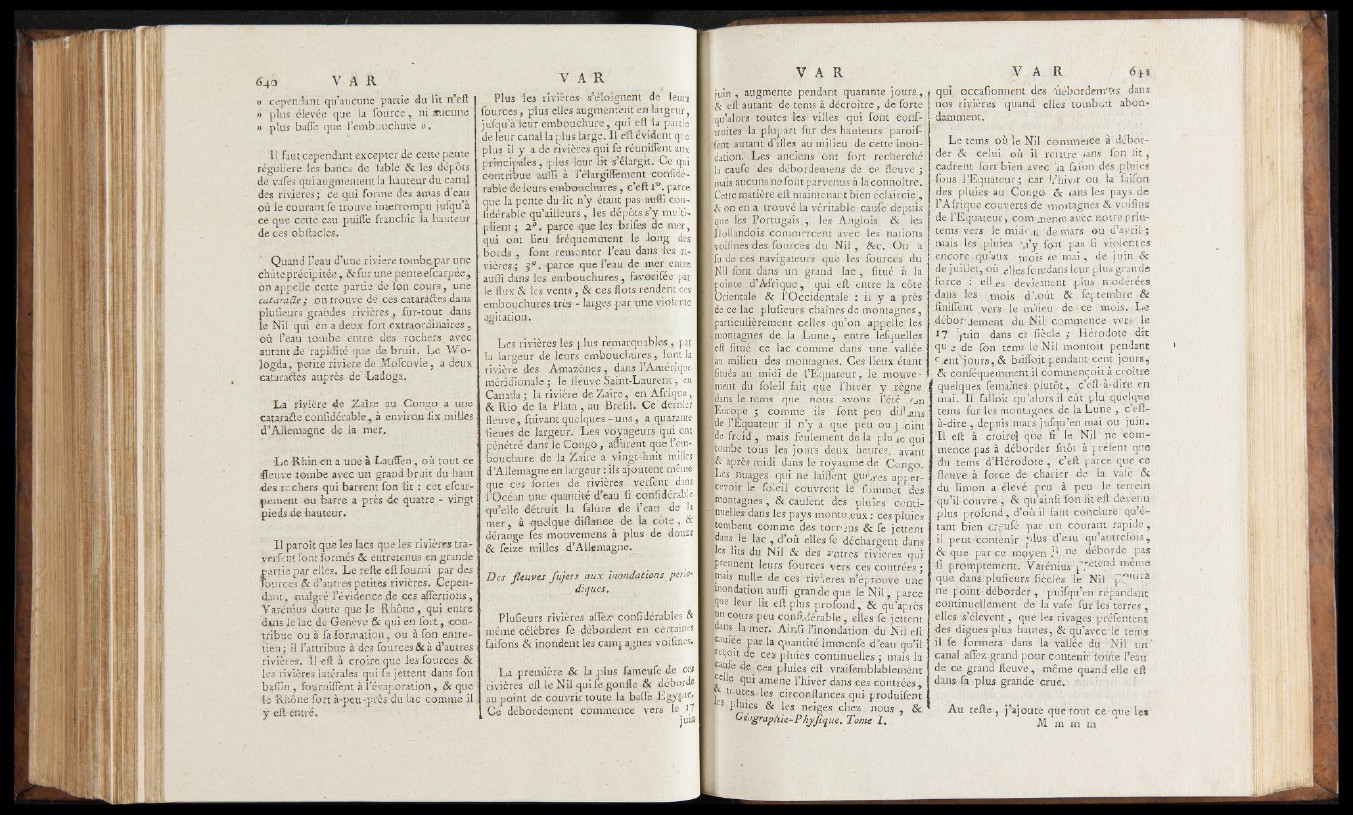 640 V A R
» cependant qu'aucune partie du lit n'est
» plus élevée que la source, ni aucune
» plus basse que l'embouchure ».
Il faut cependant excepter de cette pente
réguliere les bancs de sable & les dépôts
de vases qui augmentent la hauteur du canal
des rivières; ce qui forme des amas d'eau
où le courant se trouve interrompu jusqu'à
ce que cette eau puisse franchir la hauteur
de ces obstacles.
Quand l'eau d'une riviere tombe par une
chûte précipitée, & sur une pente escarpée,
on appelle cette partie de son cours, une
cataracte; on trouve de ces cataractes dans
plusieurs grandes rivières, sur-tout dans
le Nil qui en a deux fort extraordinaires,
où l'eau tombe entre des rochers avec
autant de rapidité que de bruit. Le Wo-
logda, petite riviere de Moscovie, a deux
cataractes auprès de Ladoga.
La rivière de Zaïre au Congo a une
cataracte considérable, à environ six milles
d'Allemagne de la mer.
Le Rhin en a une à Lauffen, où tout ce
fleuve tombe avec un grand bruit du haut
des rochers qui barrent son lit : cet escar-
pement ou barre a près de quatre - vingt
pieds de hauteur.
Il paroît que les lacs que les rivières tra-
versent sont formés & entretenus en grande
partie par elles. Le reste est fourni par des
sources & d'autres petites rivières. Cepen-
dant, malgré l'évidence de ces assertions,
Varénius doute que le Rhône, qui entre
dans le lac de Genève & qui en sort, con-
tribue ou à sa formation, ou à son entre-
tien; il l'attribue à des sources & à d'autres
rivières. Il est à croire que les sources &
les rivières latérales qui se jettent dans son
bassin, fournissent à l'évaporation, & que
le Rhône sort à-peu-près du lac comme il
y est entré.
V A R
Plus les rivières s'éloignent de leurs
sources, plus elles augmentent en largeur,
jusqu'à leur embouchure, qui est la partie
de leur canal la plus large. Il est évident que
plus il y a de rivières qui se réunissent aux
principales, plus leur lit s'élargit. Ce qui
contribue aussi à l'élargissement considé-
rable de leurs embouchures, c'est 1°. parce
que la pente du lit n'y étant pas aussi con-
sidérable qu'ailleurs, les dépôts s'y multi-
plient; 2°. parce que les brises de mer,
qui ont lieu fréquemment le long des
bords, font remonter l'eau dans les ri-
vières; 3°. parce que l'eau de mer entre
aussi dans les embouchures, favorisée par
le flux & les vents, & ces flots rendent ces
embouchures très - larges par une violente
agitation.
Les rivières les plus remarquables, par
la largeur de leurs embouchures, sont la
rivière des Amazônes, dans l'Amérique
méridionale; le fleuve Saint-Laurent, en
Canada; la rivière de Zaïre, en Afrique,
& Rio de la Plata, au Brésil. Ce dernier
fleuve, suivant quelques - uns, a quarante
lieues de largeur. Les voyageurs qui ont
pénétré dans le Congo, assurent que l'em-
bouchure de la Zaïre a vingt-huit milles
d'Allemagne en largeur : ils ajoutent même
que ces sortes de rivières versent dans
l'Océan une quantité d'eau si considérable
qu'elle détruit la salure de l'eau de la
mer, à quelque distance de la côte, &
dérange ses mouvemens à plus de douze
& seize milles d'Allemagne.
Des fleuves sujets aux inondations pério-
diques.
Plusieurs rivières assez considérables &
même célèbres se débordent en certaines
saisons & inondent les campagnes voisines.
La première & la plus fameuse de ces
rivières est le Nil qui se gonfle & déborde
au point de couvrir toute la basse Egypte.
Ce débordement commence vers le 17
juin
V A R
juin, augmente pendant quarante jours,
& est autant de tems à décroître, de sorte
qu'alors toutes les villes qui sont cons-
truites la plupart sur des hauteurs parois-
sent autant d'isles au milieu de cette inon-
dation. Les anciens ont fort recherché
la cause des débordemens de ce fleuve;
mais aucuns ne sont parvenus à la connoître.
Cette matière est maintenant bien éclaircie,
& on en a trouvé la véritable cause depuis
que les Portugais, les Anglois & les
Hollandois commercent avec les nations
voisines des sources du Nil, &c. On a
su de ces navigateurs que les sources du
Nil sont dans un grand lac, situé à la
pointe d'Afrique, qui est entre la côte
Orientale & l'Occidentale : il y a près
de ce lac plusieurs chaînes de montagnes,
particulièrement celles qu'on appelle les
montagnes de la Lune, entre lesquelles
est situé ce lac comme dans une vallée
au milieu des montagnes. Ces lieux étant
situés au midi de l'Equateur, le mouve-
ment du soleil fait que l'hiver y règne
dans le tems que nous avons l'été en
Europe ; comme ils sont peu distans
de l'Equateur il n'y a que peu ou point
de froid, mais seulement de la pluie qui
tombe tous les jours deux heures, avant
& après midi dans le royaume de Congo.
Les nuages qui ne laissent guères apper-
cevoir le soleil couvrent le sommet des
montagnes, & causent des pluies conti-
nuelles dans les pays montueux : ces pluies
tombent comme des torrens & se jettent
dans le lac, d'où elles se déchargent dans
les lits du Nil & des autres rivières qui
prennent leurs sources vers ces contrées;
mais nulle de ces rivieres n'éprouve une
inondation aussi grande que le Nil, parce
que leur lit est plus profond, & qu'après
un cours peu considérable, elles se jettent
dans la mer. Ainsi l'inondation du Nil est
causée par la quantité immense d'eau qu'il
reçoit de ces pluies continuelles; mais la
cause de ces pluies est vraisemblablement
celle qui amene l'hiver dans ces contrées,
& toutes les circonstances qui produisent
les pluies & les neiges chez nous, &
Géographie-Physique. Tome I.
V A R 641
qui occasionnent des débordemens dans
nos rivières quand elles tombent abon-
damment.
Le tems où le Nil commence à débor-
der & celui où il rentre dans son lit,
cadrent fort bien avec la saison des pluies
sous l'Equateur; car l'hiver ou la saison
des pluies au Congo & dans les pays de
l'Afrique couverts de montagnes & voisins
de l'Equateur, commence avec notre prin-
tems vers le midi de mars ou d'avril;
mais les pluies n'y sont pas si violentes
encore qu'aux mois de mai, de juin &
de juillet, où elles sont dans leur plus grande
force : elles deviennent plus modérées
dans les mois d'août & septembre &
finissent vers le milieu de ce mois. Le
débordement du Nil commence vers le
17 juin dans ce siècle; Hérodote dit
que de son tems le Nil montoit pendant
cent jours, & baissoit pendant cent jours,
& conséquemment il commençoit à croître
quelques semaines plutôt, c'est-à-dire en
mai. Il falloit qu'alors il eût plu quelque
tems sur les montagnes de la Lune, c'est-
à-dire, depuis mars jusqu'en mai ou juin.
Il est à croire que si le Nil ne com-
mence pas à déborder sitôt à présent que
du tems d'Hérodote, c'est parce que ce
fleuve à force de charier de la vase &
du limon a élevé peu à peu le terrein
qu'il couvre, & qu'ainsi son lit est devenu
plus profond, d'où il faut conclure qu'é-
tant bien creusé par un courant rapide,
il peut contenir plus d'eau qu'autrefois,
& que par ce moyen il ne déborde pas
si promptement. Varénius prétend même
que dans plusieurs siècles le Nil pourra
ne point déborder, puisqu'en répandant
continuellement de la vase sur les terres,
elles s'élevent, que les rivages présentent
des digues plus hautes, & qu'avec le tems
il se formera dans la vallée du Nil un
canal assez grand pour contenir toute l'eau
de ce grand fleuve, même quand elle est
dans sa plus grande crue.
Au reste, j'ajoute que tout ce que les
M m m m